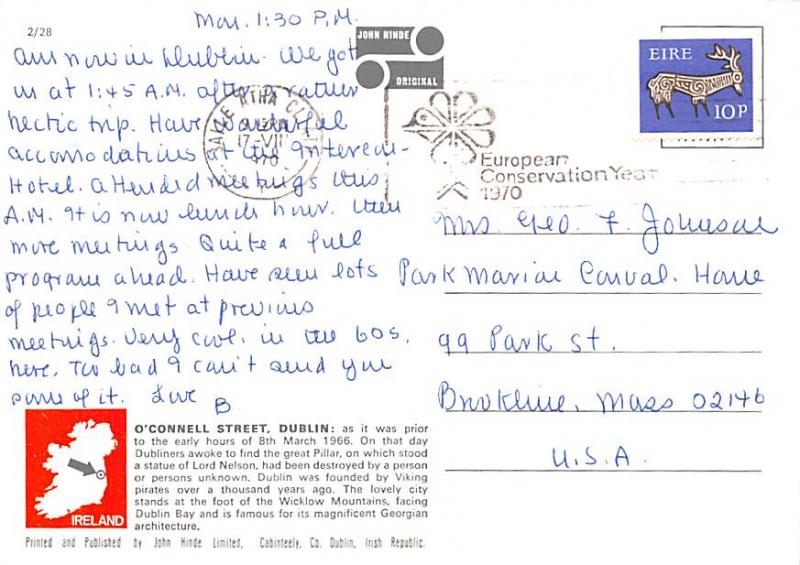 Mon. 1:30 P.M.
2/28
Am now in Dublin. We got
in at 1:45 A.M. after a rather
hectic trip. Have wonderful
accomodations at the Intercon-
Hotel. Attended meetings this
A.M. It is now lunch hour. Then
more meetings. Quite a full
program ahead. Have seen lots
of people I met at previous
meetings. Very cool, in the 60s,
here. Too bad I can't send you
some of it. Love
B
JOHN HINDE
ORIGINAL
EIRE
10P
BAILE ÁTHA CLIATH
17-VII
1970
European
Conservation Year
1970
Mrs. Geo. F. Johnson
Park Marion Conval. Home
99 Park St.
Brookline, Mass 02146
U.S.A.
IRELAND
O'CONNELL STREET, DUBLIN: as it was prior
to the early hours of 8th March 1966. On that day
Dubliners awoke to find the great Pillar, on which stood
a statue of Lord Nelson, had been destroyed by a person
or persons unknown. Dublin was founded by Viking
pirates over a thousand years ago. The lovely city
stands at the foot of the Wicklow Mountains, facing
Dublin Bay and is famous for its magnificent Georgian
architecture.
Printed and Published by John Hinde Limited, Cabinteely, Co. Dublin, Irish Republic.